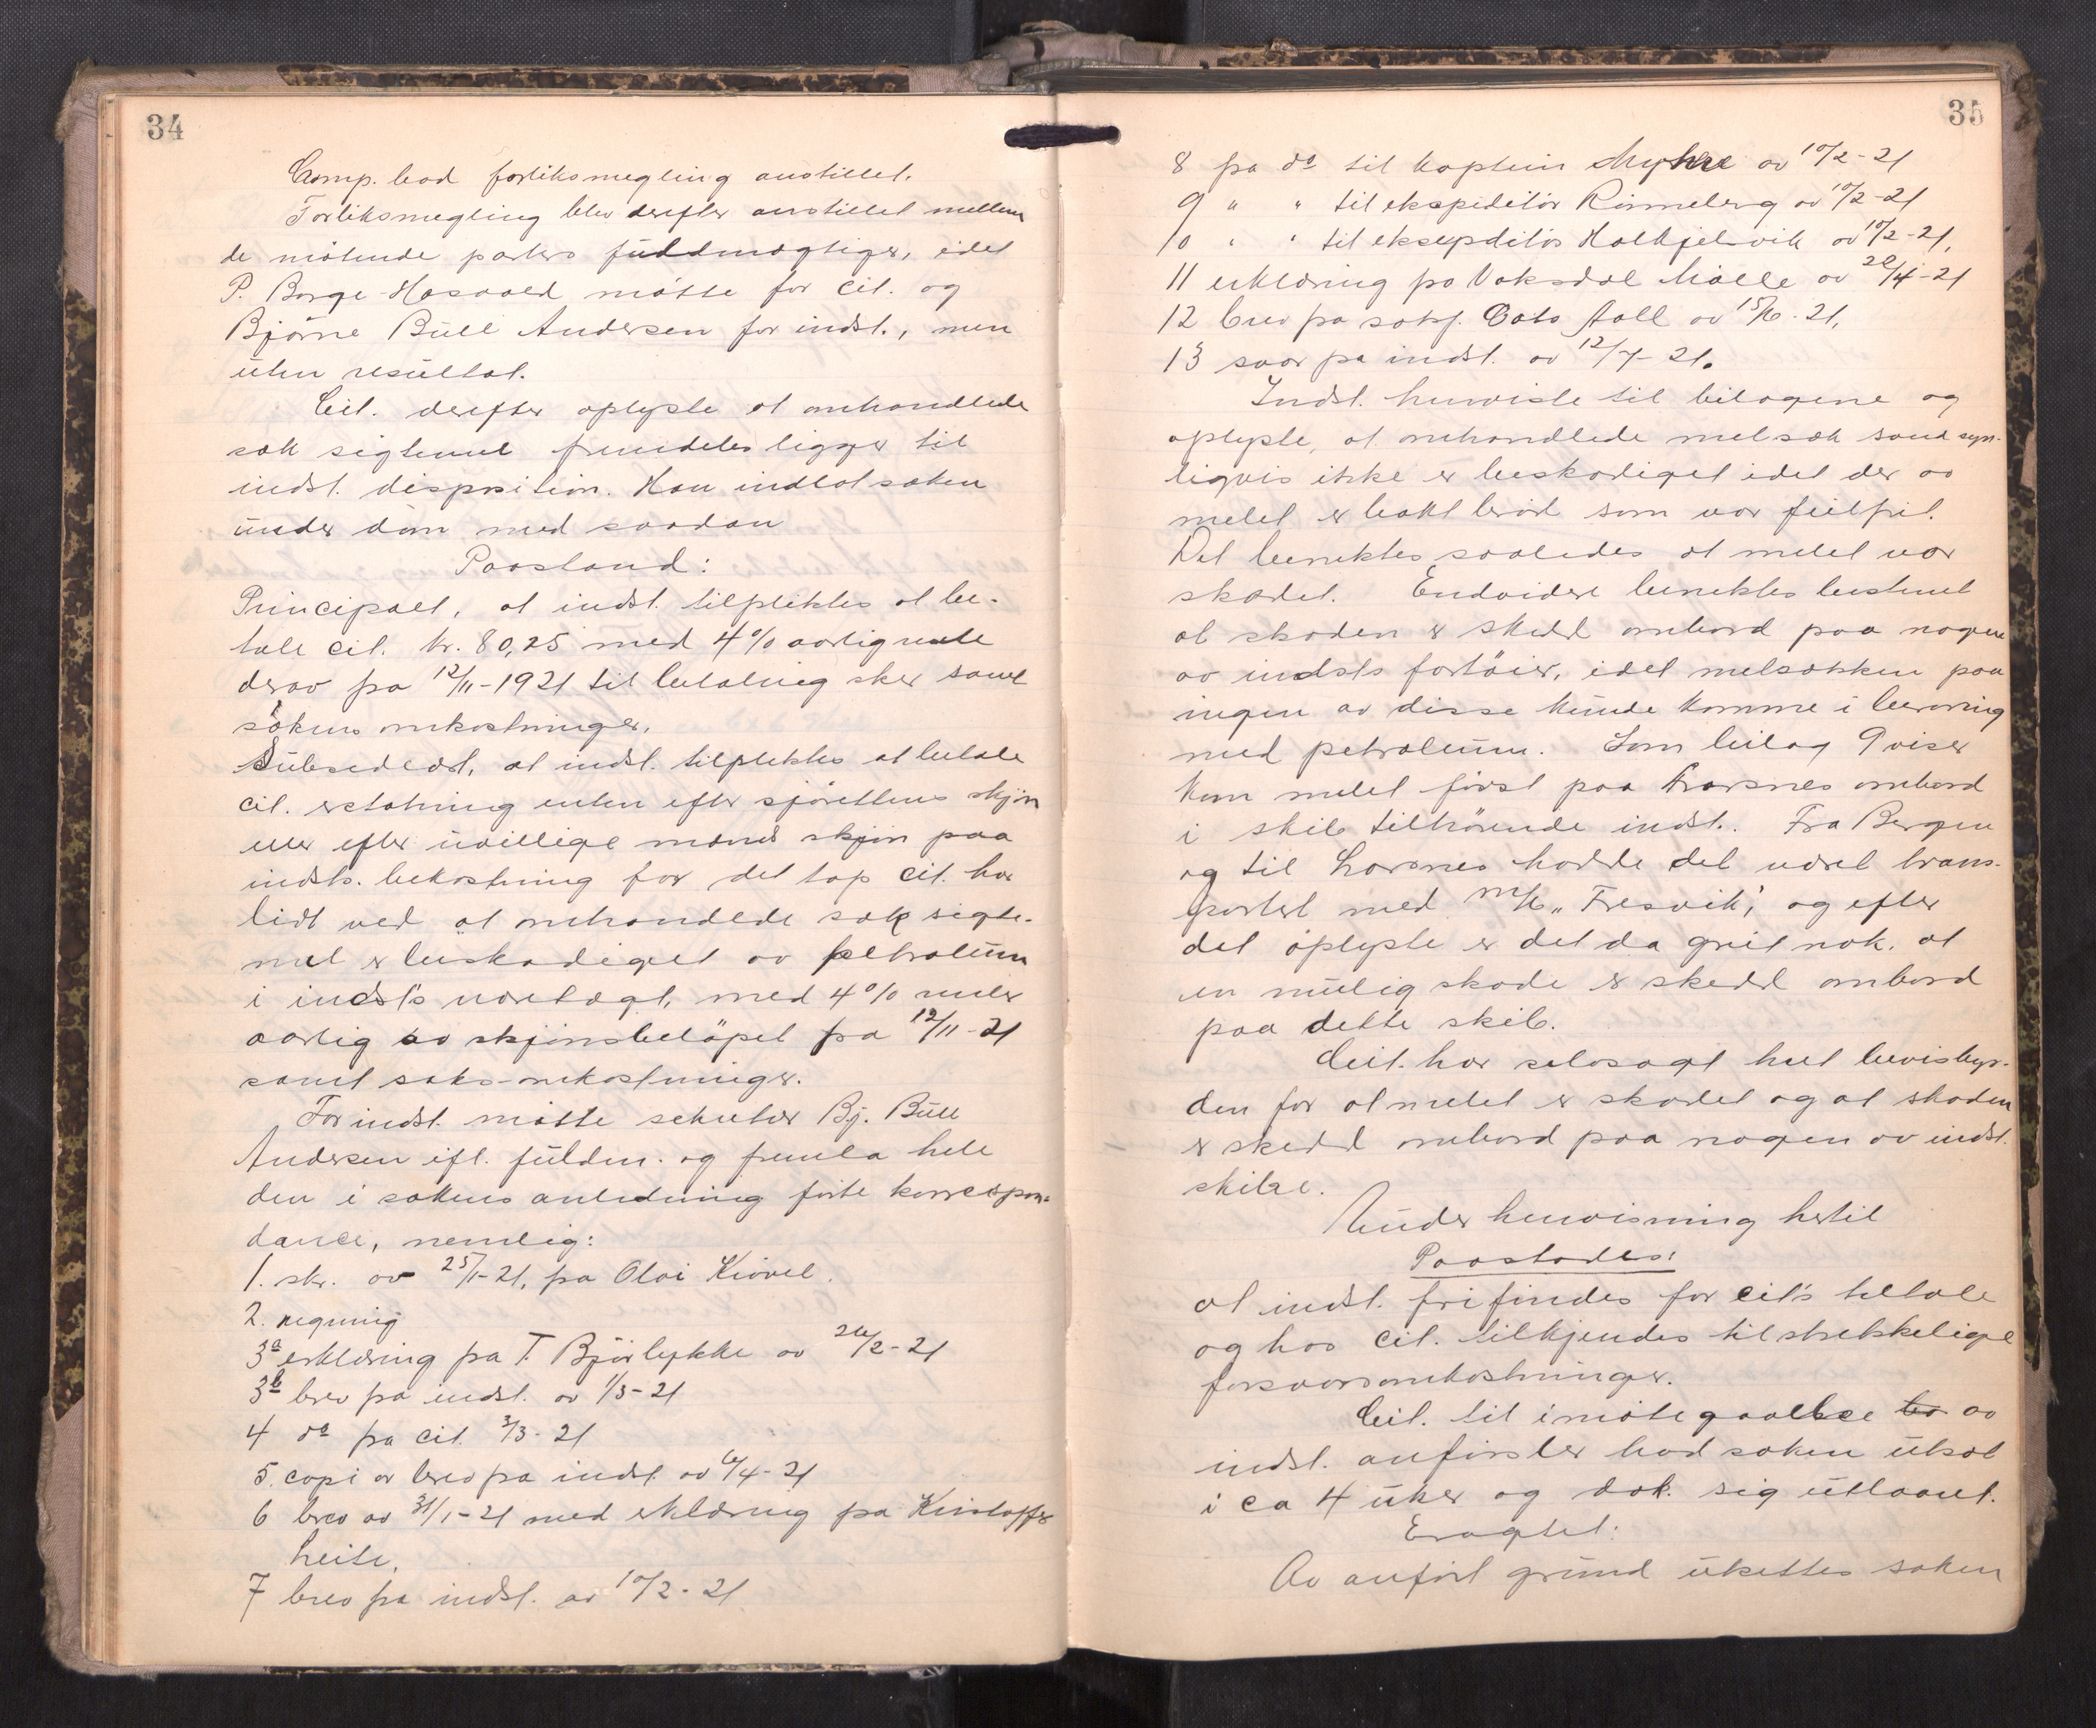 34
Comp. bad forliksmegling anstillet.
Forliksmegling blev derefter anstillet mellem
de møtende parters fuldmægtiger, idet
P. Borge-Hasvold møtte for cit. og
Bjarne Bull Andersen for indst., men
uten resultat.
Cit. derefter oplyste at omhandlede
sæk sigtemel fremdeles ligger til
indst. disposition. Han indlot saken
under dom med saadan
Paastand:
Principalt, at indst. tilpliktes at be-
tale cit. kr. 80,25 med 4% aarlig rente
derav fra 12/11-1921 til betaling sker samt
sakens omkostninger.
Subsidiært, at indst. tilpliktes at betale
cit. erstatning enten efter sjørettens skjøn
eller efter uvillige mænds skjøn paa
indsts. bekostning for det tap cit. har
lidt ved at omhandlede sæk sigte-
mel er beskadiget av petroleum
i indst's varetægt, med 4% renter
aarlig av skjønsbeløpet fra 12/11-21
samt saks-omkostninger.
For indst. møtte sekretær Bj. Bull
Andersen ifl. fuldm. og fremla hele
den i sakens anledning førte korrespon-
dance, nemlig:
1. skr. av 25/1-21, fra Olai Kvovel.
2. regning
3a erklæring fra T. Bjørlykke av 24/2-21
3b brev fra indst. av 1/3-21
4 do fra cit. 3/3-21
5. copi av brev fra indst. av 6/4-21
6 brev av 31/1-21 med erklæring fra Kristoffer
Leite.
7 brev fra indst. av 10/2-21
35
8 fra do til kaptein Myhre av 10/2-21
9 " " til ekspeditør Rinneberg av 10/2-21
10 " " til eksepditør Holkjelvik av 10/2-21,
11 erklæring fra Vaksdal Mølle av 20/4-21
12 brev fra saksf. Cato Aall av 15/6-21,
13 svar fra indst. av 12/7-21.
Indst. henviste til bilagene og
oplyste, at omhandlede melsæk sandsyn-
ligvis ikke er beskadiget idet der av
melet er bakt brød som var feilfrit.
Det benektes saaledes at melet var
skadet. Endvidere benektes bestemt
at skaden er skedd ombord paa nogen
av indsts fartøier, idet melsækken paa
ingen av disse kunde komme i berøring
med petroleum. Som bilag 9 viser
kom melet først paa Larsnes ombord
i skib tilhørende indst. Fra Bergen
og til Larsnes hadde det været trans-
portert med m/k „Fresvik", og efter
det oplyste er det da greit nok, at
en mulig skade er skedd ombord
paa dette skib.
Cit. har selvsagt helt bevisbyr-
den for at melet er skadet og at skaden
er skedd ombord paa nogen av indst.
skibe.
Under henvisning hertil
Paastodes:
at indst. frifindes for cit's tiltale
og hos cit. tilkjendes tilstrekkelige
forsvarsomkostninger.
Cit. til imøtegaaelse av
indst. anførsler bad saken utsat
i ca 4 uker og dok. sig utlaant.
Eragtet:
Av anført grund utsettes saken